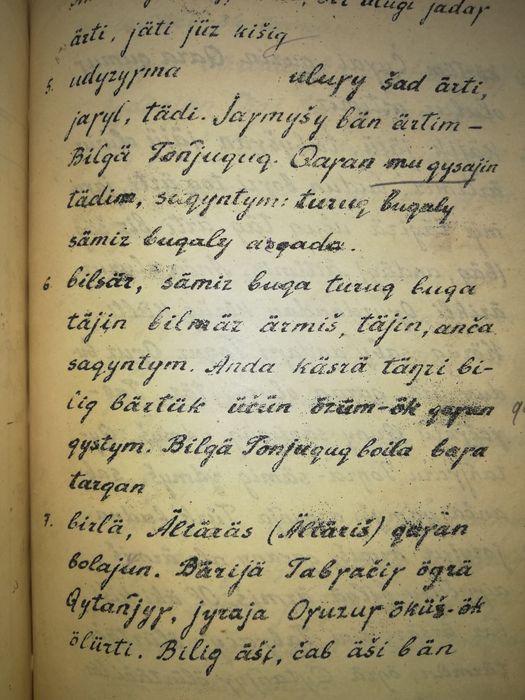 ulugi jadaγ
ärti, jäti jüz kišig
5. udyzyγma uluγy šad ärti,
jaγyl, tädi. Jaγmyšy bän ärtim –
Bilgä Tonjuquq. Qaγan mu qysajin
tädim, saqyntym: turuq buqaly
sämiz buqaly arqada.
6. bilsär, sämiz buqa turuq buqa
täjin bilmäz ärmiš, täjin, anča
saqyntym. Anda käsrä täŋri bi-
lig bärtük üčün özüm-ök qaγan
qystym. Bilgä Tonjuquq boila baγa
tarqan
7. birlä, Ältäräs (Ältäriš) qaγan
bolajun. Bärijä Tabγačiγ ögrä
Qytańjyγ, jyraja Oγuzuγ öküš-ök
ölürti. Bilig äši, čab äši bän